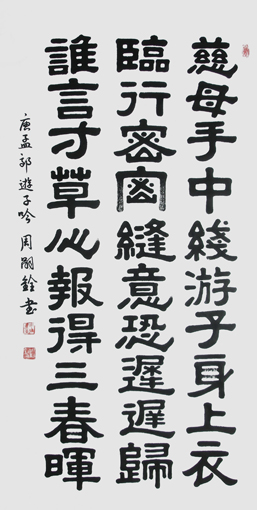 慈母手中綫游子身上衣
臨行密密縫意恐遲遲歸
誰言才草心報得三春暉
唐孟郊遊子吟 周嗣銓书